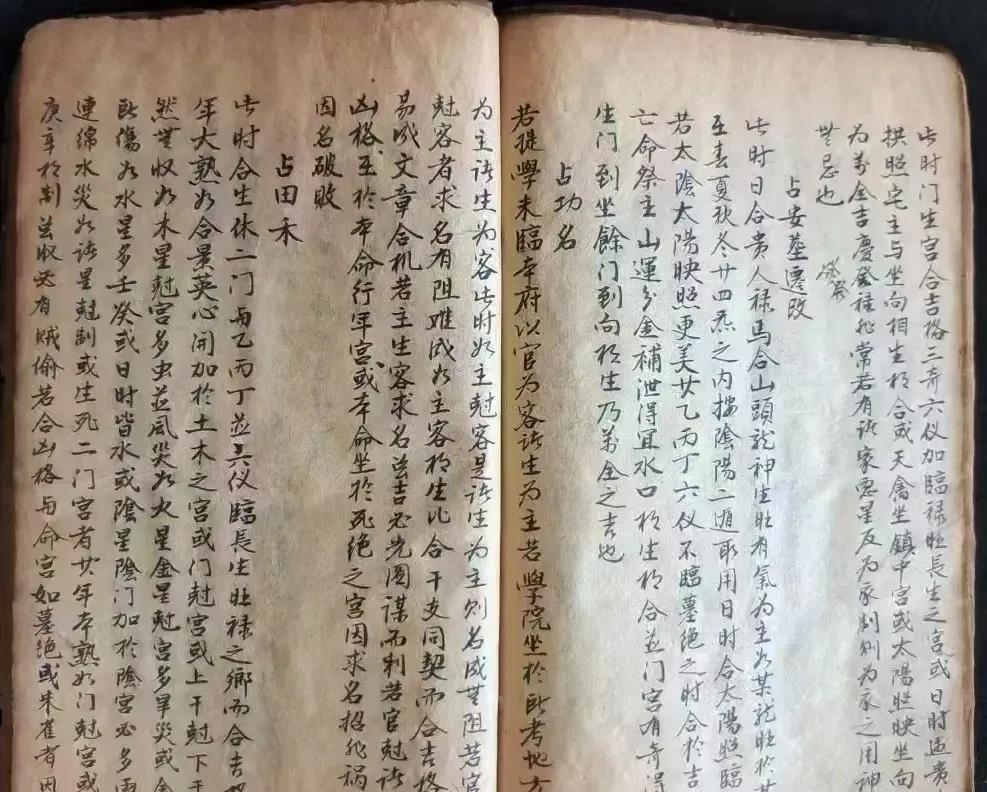 此时门生宫合吉格三奇六仪加臨禄旺長生之宫或日时遇贵
拱照宅主与坐向相生相合或天禽坐鎮中宫或太陽照映坐向
为萬全吉慶發福非常若有诸家惡星反为我制则为我之用神
無忌也
占安塟遷改
此时日合贵人禄馬合山頭龍神生旺有氣为主如某龍旺於某
至春夏秋冬廿四炁之内按陰陽二遁取用日时合太陽照臨
若太陰太陽映照更美其乙丙丁六仪不臨墓绝之时合於吉
亡命祭主山運分金補泄得宜水口相生相合並门宫有奇得
生门到坐餘门到向相生乃萬全之吉也
占功名
若提學未臨本府以官为客诸生为主若學院坐於此考地方
为主诸生为客此时如主尅客是诸生为主则名成無阻若官
尅客者求名有阻难成如主客相生比合干支同契而合吉格
易成文章合机若主生客求名並吉必先圖謀而利若官尅诸
凶格至於本命行年宫或本命坐於死绝之宫因求名招非祸
因名破败
占田禾
此时合生休二门再乙丙丁並六仪臨長生旺禄之鄉而合吉格
年大熟如合景英心開加於土木之宫或门尅宫或上干尅下干
然無收如木星尅宫多虫並風災如火星金星尅宫多旱災或金
所傷如水星多壬癸或日时皆水或陰星陰门加於陰宫必多雨
連绵水災如诸星尅制或生死二门宫者其年本熟如门尅宫或
庚辛相制並收必有贼偷若合凶格与命宫如墓绝或朱雀者因